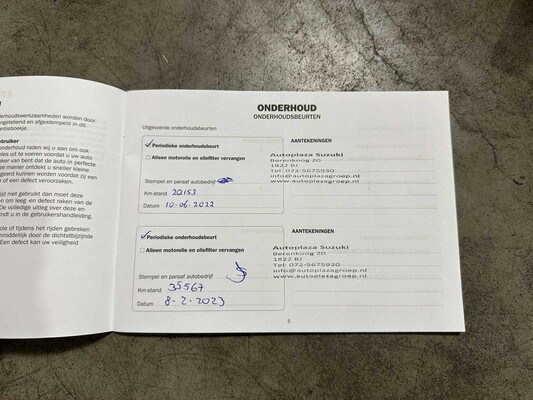 derhoudswerkzaamheden worden door
ngetekend en afgestempeld in dit
antieboekje.
bruiker
onderhoud raden wij u aan om ook
les uit te voeren voordat u uw auto
ker van bent dat de auto in perfecte
ze manier ontdekt u sneller kleine
geerd kunnen worden voordat zij een
n of een defect veroorzaken.
ijd niet gebruikt dan moet deze
n om leeg -en defect raken van de
De volledige uitleg over deze en
indt u in de gebruikershandleiding.
ole of tijdens het rijden gebreken
nmiddellijk door de dichtstbijzijnde
Een defect kan uw veiligheid
ONDERHOUD
ONDERHOUDSBEURTEN
Uitgevoerde onderhoudsbeurten
Periodieke onderhoudsbeurt
Alleen motorolie en oliefilter vervangen
Stempel en paraaf autobedrijf
Km-stand 20153
Datum 10-06-2022
AANTEKENINGEN
Autoplaza Suzuki
Berenkoog 20
1822 BJ
Tel: 072-5675930
info@autoplazagroep.nl
www.autoplazagroep.nl
Periodieke onderhoudsbeurt
Alleen motorolie en oliefilter vervangen
Stempel en paraaf autobedrijf
Km-stand 35567
Datum 8-2-2023
AANTEKENINGEN
Autoplaza Suzuki
Berenkoog 20
1822 BJ
Tel: 072-5675930
info@autoplazagroep.nl
www.autoplazagroep.nl